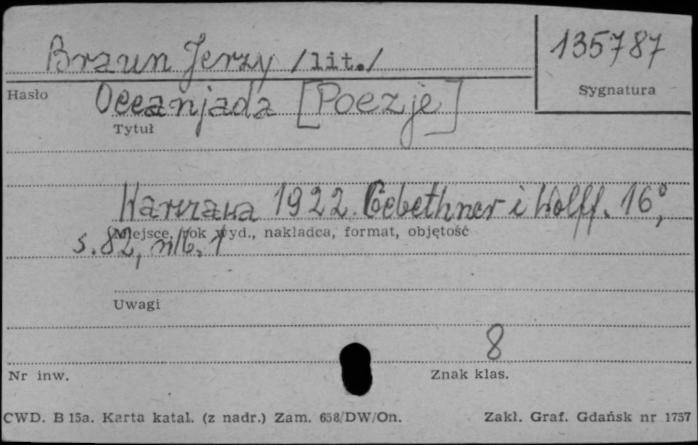 Braun Jerzy /lit./
135787
Hasło
Sygnatura
Oceanjada [Poezje]
Tytuł
Warszawa 1922. Gebethner i Wolff. 16°,
Miejsce, rok wyd., nakładca, format, objętość
s. 82, nlb. 1
Uwagi
8
Nr inw.
Znak klas.
CWD. B 15a. Karta katal. (z nadr.) Zam. 658/DW/On.
Zakł. Graf. Gdańsk nr 1757